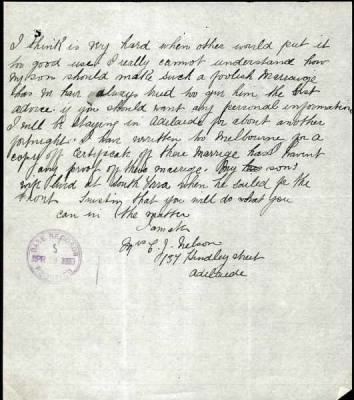 I think is very hard when other would put it
to good use I really cannot understand how
my son should make such a foolish Marraige
has we have always tried too give him the best
advice if you should want any personal information
I will be staying in Adelaide for about another
fortnight. I have written to Melbourne for a
copy off Certificate of there Marrige has I havent
any proof off there marrige. My son's
wife lived at South Yarra when he sailed for the
Front Trusting that you will do what you
can in the matter
I am etc
Mrs E. J. Nelson
137 Hindley street
Adelaide
BASE RECORDS
5
APR